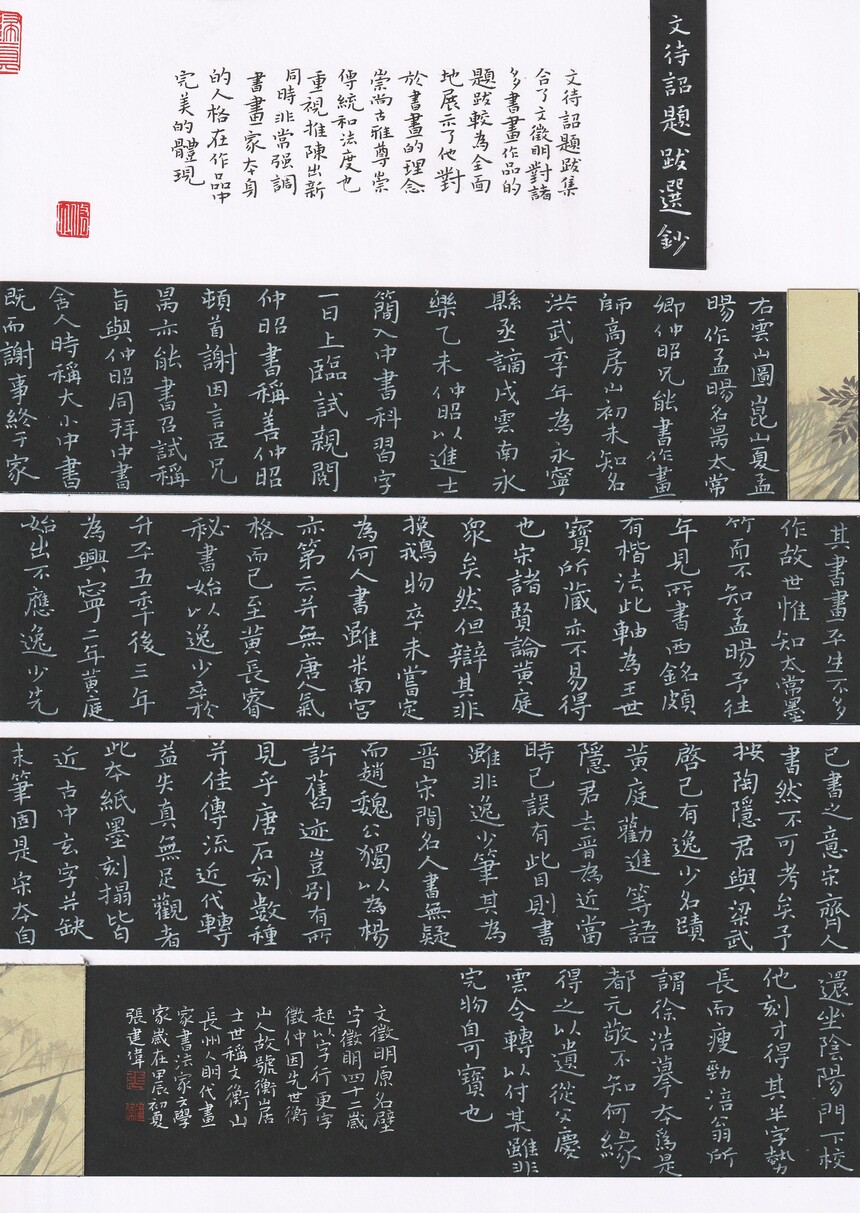 文待詔題跋選鈔
文待詔題跋集
合了文徵明對諸
多書畫作品的
題跋較為全面
地展示了他對
於書畫的理念
崇尚古雅尊崇
傳統和法度也
重視推陳出新
同時非常强調
書畫家本身
的人格在作品中
完美的體現
右雲山圖崑山夏孟
暘作孟暘名昺太常
卿仲昭兄能書作畫
師高房山初未知名
洪武季年為永寧
縣丞謫戍雲南永
樂乙未仲昭以進士
簡入中書科習字
一日上臨試親閱
仲昭書稱善仲昭
頓首謝因言臣兄
昺亦能書召試稱
旨與仲昭同拜中書
舍人時稱大小中書
既而謝事終于家
其書畫平生不多
作故世惟知太常墨
竹而不知孟暘予往
年見所書西銘頗
有楷法此軸為王世
寶所藏亦不易得
也宋諸賢論黃庭
衆矣然但辯其非
換鵝物卒未嘗定
為何人書雖米南宮
亦第云并無唐人氣
格而已至黃長睿
秘書始以逸少卒於
升平五年後三年
為興寧二年黃庭
始出不應逸少先
已書之意宋齊人
書然不可考矣予
按陶隱君與梁武
啓已有逸少名蹟
黃庭勸進等語
隱君去晋為近當
時已誤有此目則書
雖非逸少筆其為
晉宋間名人書無疑
而趙魏公獨以為楊
許舊迹豈別有所
見乎唐石刻數種
并佳傳流近代轉
益失真無足觀者
此本紙墨刻搨皆
近古中玄字并缺
末筆固是宋本自
還坐陰陽門下校
他刻才得其半字勢
長而瘦勁涪翁所
謂徐浩摹本為是
都元敬不知何緣
得之以遺從父慶
雲令轉以付某雖非
完物自可寶也
文徵明原名壁
字徵明四十二歲
起以字行更字
徵仲因先世衡
山人故號衡山居
士世稱文衡山
長州人明代畫
家書法家文學
家歲在甲辰初夏
張建偉